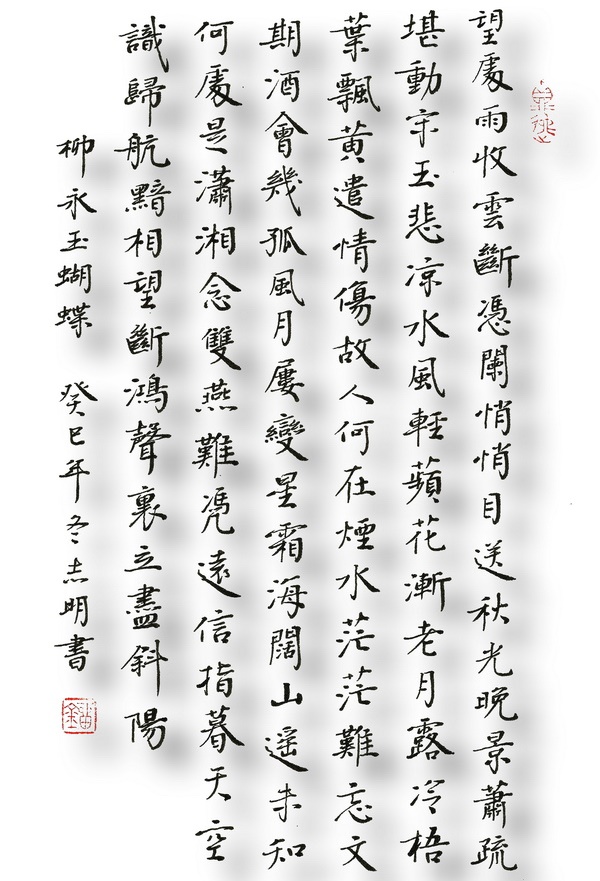 望處雨收雲斷憑闌悄悄目送秋光晚景蕭疏
堪動宋玉悲涼水風輕蘋花漸老月露冷梧
葉飄黃遣情傷故人何在煙水茫茫難忘文
期酒會幾孤風月屢變星霜海闊山遥未知
何處是瀟湘念雙燕難凭遠信指暮天空
識歸航黯相望斷鴻聲裏立盡斜陽
柳永玉蝴蝶 癸巳年冬志明書